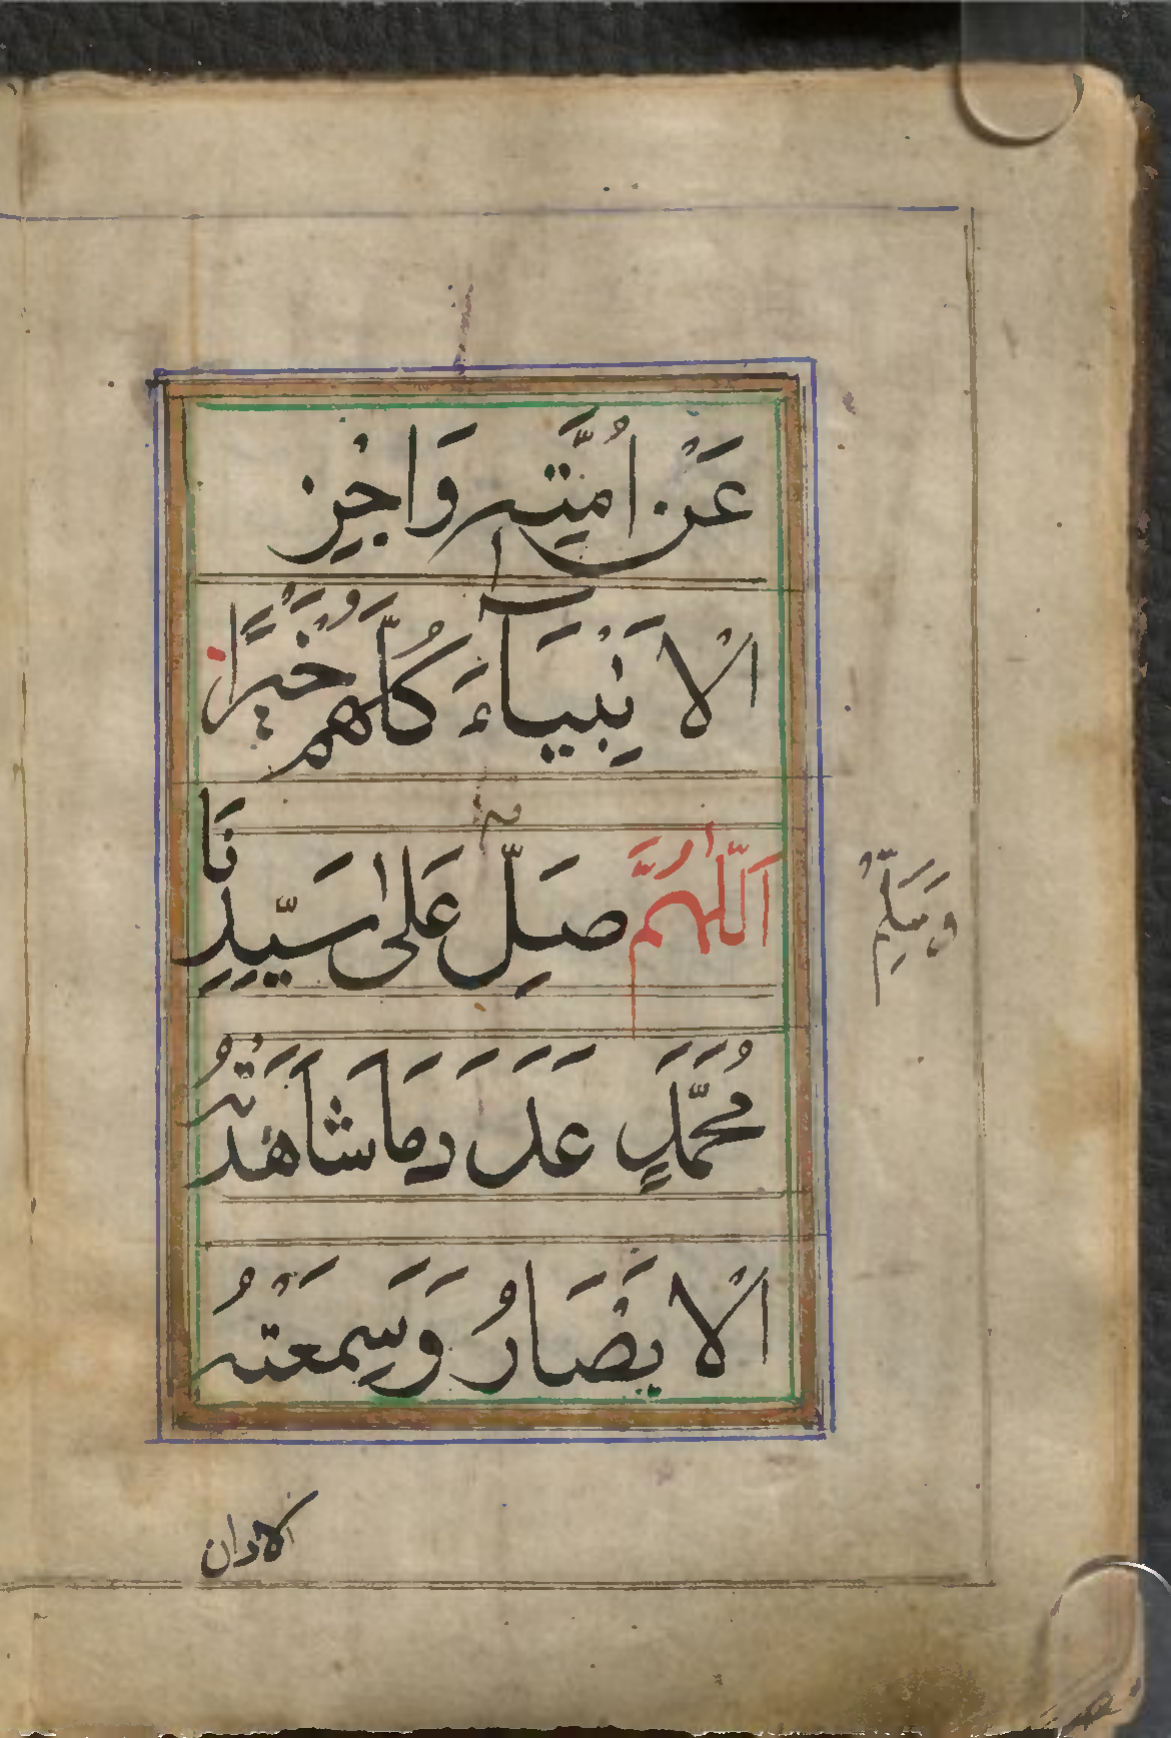 عَنْ اُمَّتِهِ وَاجْزِ
الْاَنْبِيَآءَ كُلَّهُمْ خَيْرًا
اَللّٰهُمَّ صَلِّ عَلٰى سَيِّدِنَا
وَسَلِّمْ
مُحَمَّدٍ عَدَدَ مَا شَاهَدَتْهُ
الْاَبْصَارُ وَسَمِعَتْهُ
الاذان